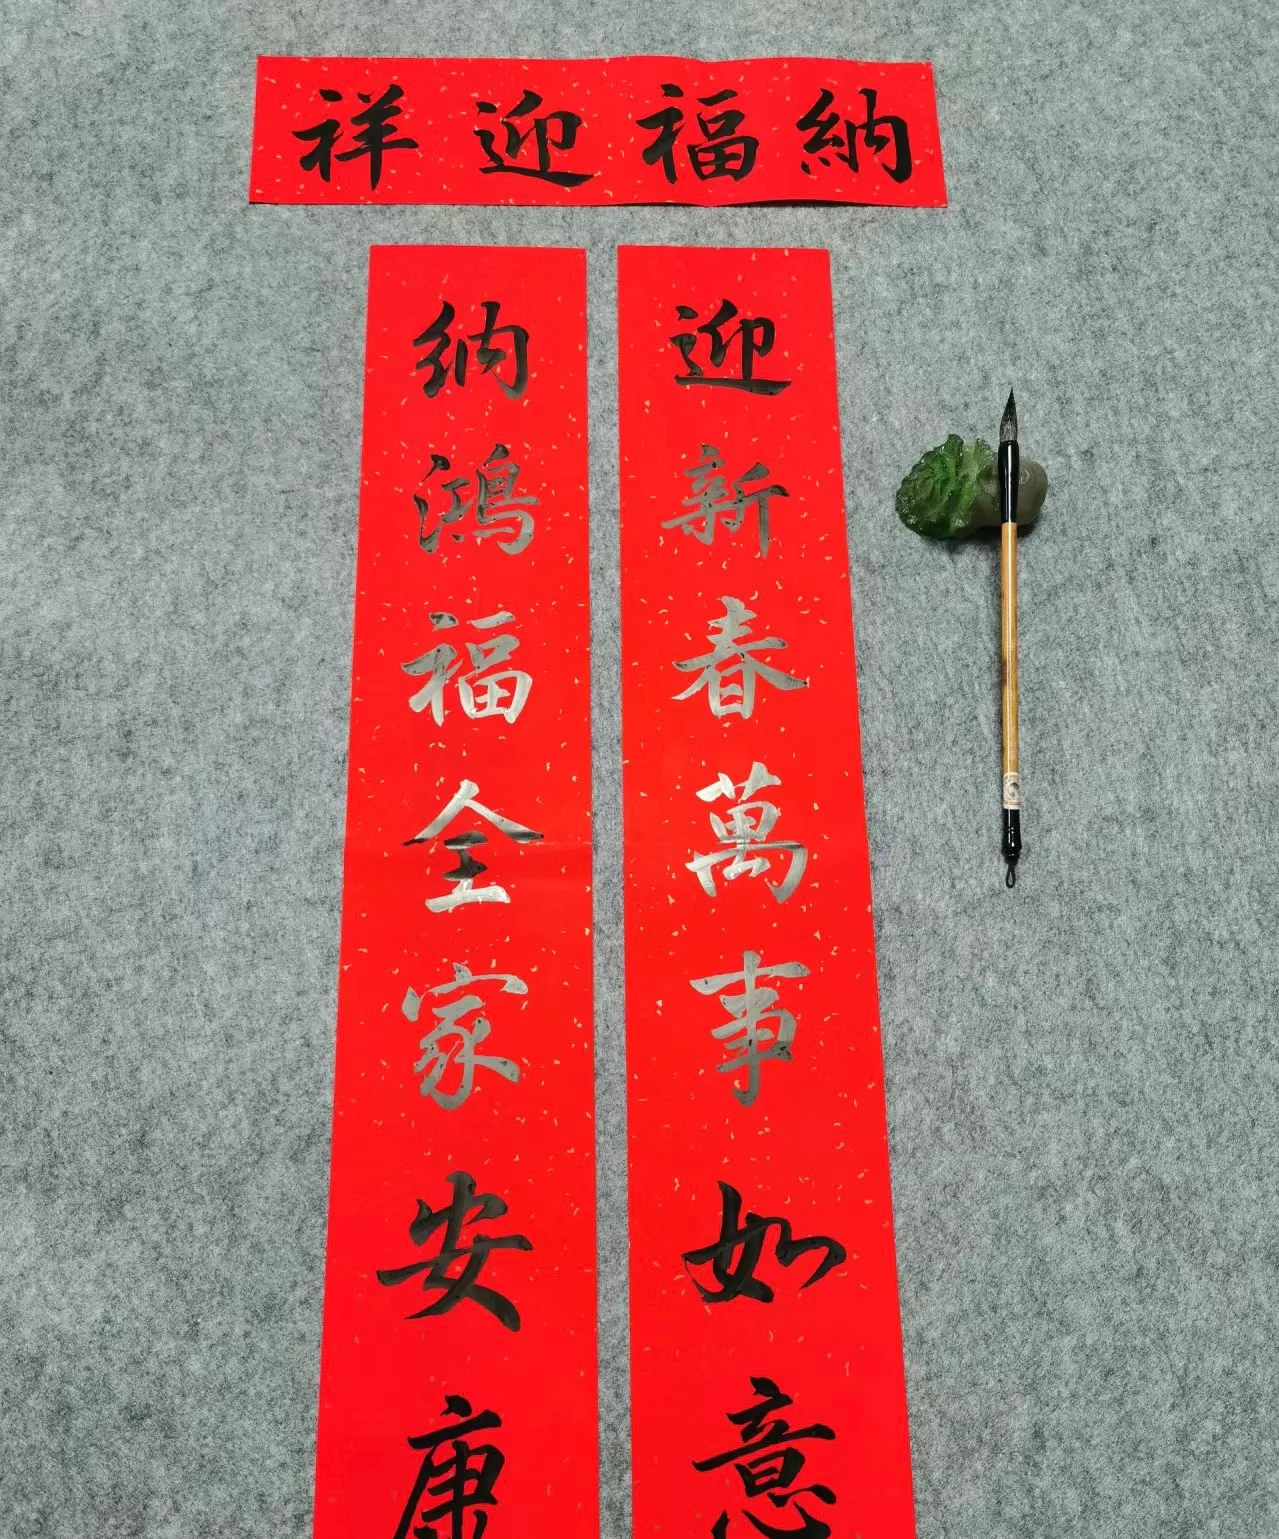 納福迎祥
迎新春萬事如意
纳鴻福全家安康